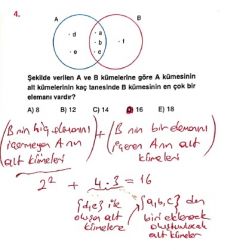 4.
A
B
d
a
b
c
e
f
Şekilde verilen A ve B kümelerine göre A kümesinin
alt kümelerinin kaç tanesinde B kümesinin en çok bir
elemanı vardır?
A) 8 B) 12 C) 14 D) 16 E) 18
(B nin hiç elemanını + (B nin bir elemanını
içermeyen A nın içeren A nın alt
alt kümeleri) kümeleri)
2² + 4·3 = 16
{d,e} ile {a,b,c} den
oluşan alt biri eklenerek
kümelere oluşturulacak
alt kümeler